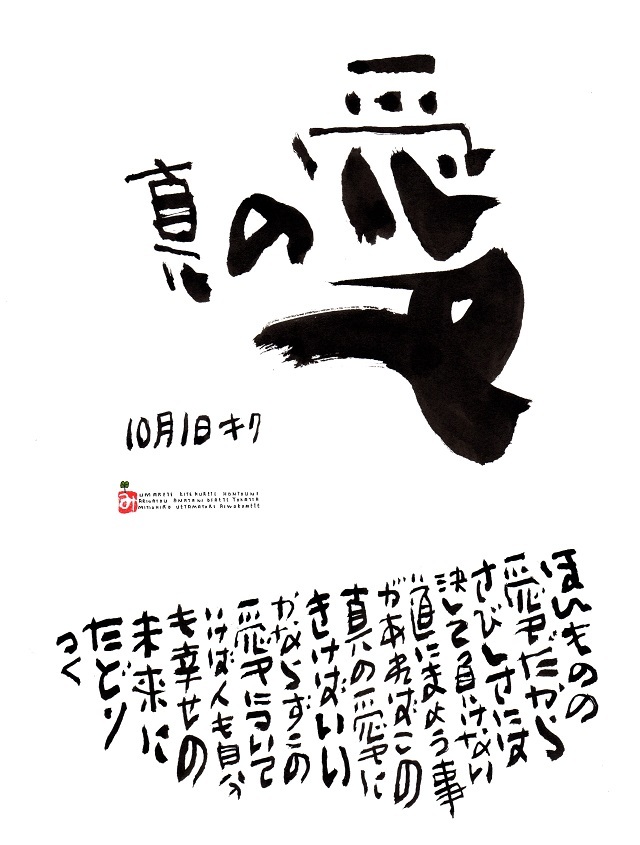 真の愛
10月1日 キク
み
UMARETE KITEKURETE HONTOUNI
ARIGATOU ANATANI DEAETE YOKATTA
ほんものの
愛だから
さびしさには
決して負けない
道にまよう事
があればこの
真の愛に
きけばいい
かならずこの
愛について
いけば人も自分
も幸せの
未来に
たどり
つく